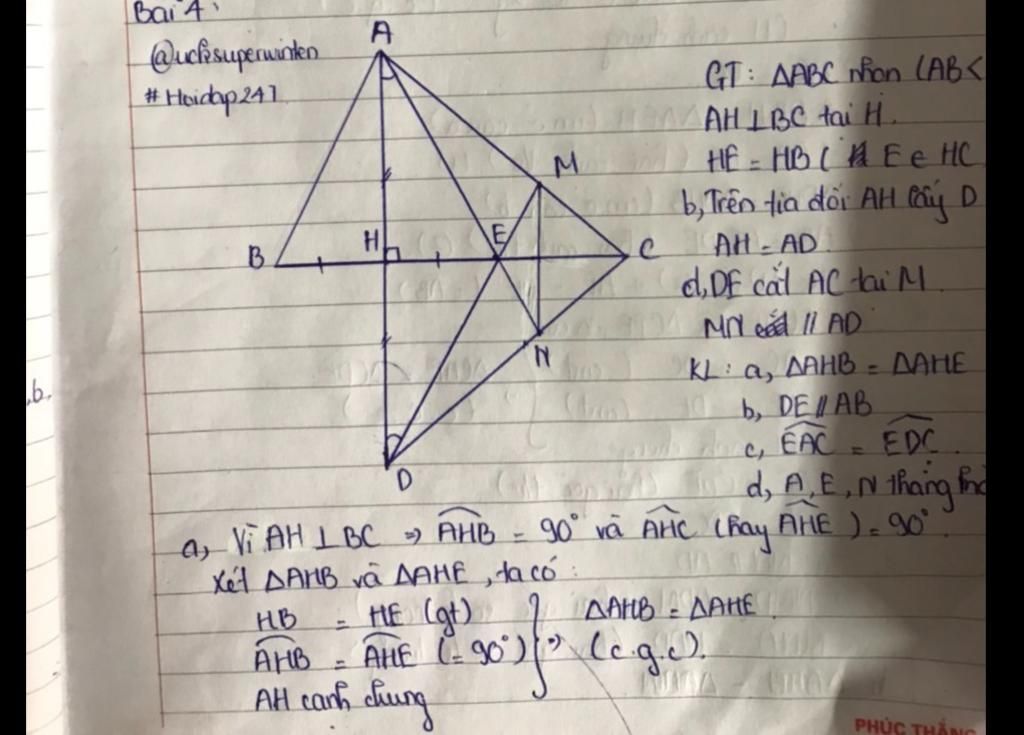 Bài 4:
@uchsuperwinten
#Hoidap247
GT: ΔABC nhọn (AB<
AH⊥BC tại H.
HE = HB ( E ∈ HC
b, Trên tia đối AH lấy D
AH = AD
d, DE cắt AC tại M
MN // AD
KL: a, ΔAHB = ΔAHE
b, DE // AB
c, EAC = EDC.
d, A, E, N thẳng
A
M
B
H
E
C
N
D
b.
a, Vì AH ⊥ BC => AHB = 90° và AHC (hay AHE) = 90°.
Xét ΔAHB và ΔAHE, ta có:
HB = HE (gt)
AHB = AHE (= 90°) } => ΔAHB = ΔAHE (c.g.c).
AH cạnh chung
PHÚC THẮNG